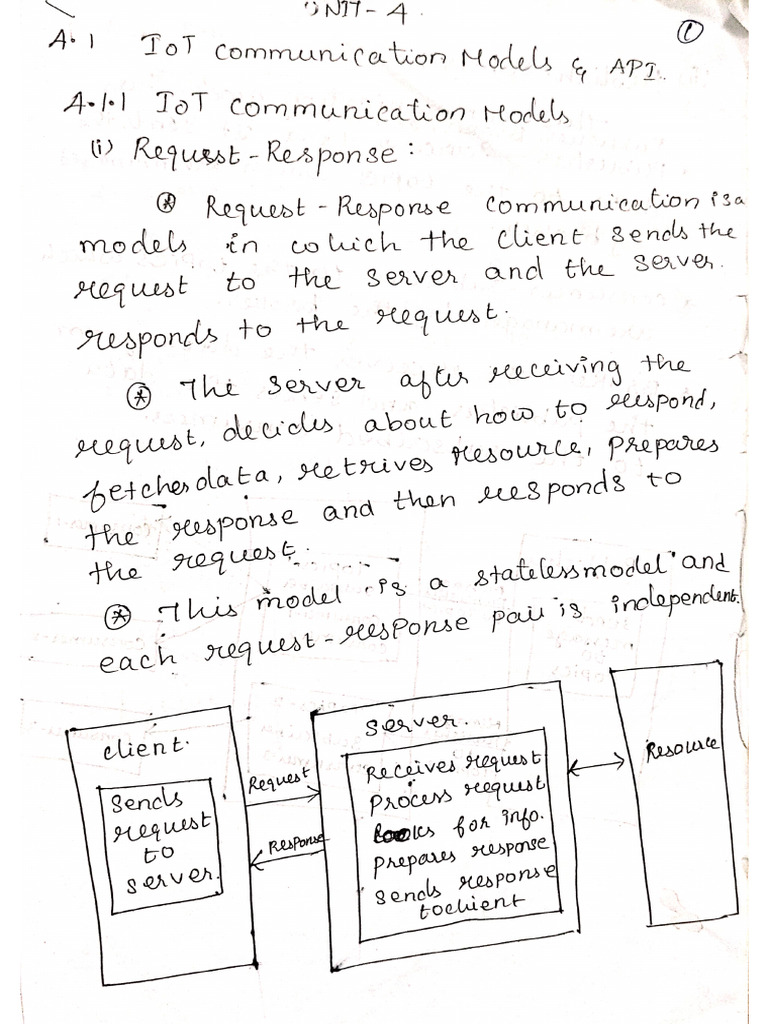 UNIT-4
1
4.1 IoT communication Models & API.
4.1.1 IoT communication Models
(i) Request-Response:
Request-Response communication is a
models in which the client sends the
request to the server and the server.
responds to the request.
The server after receiving the
request, decides about how to respond,
fetches data, retrives resource, prepares
the response and then responds to
the request.
This model is a stateless model and
each request-response pair is independent.
client.
Sends
request
to
server.
Request
Response
server.
Receives request
Process request
looks for info.
prepares response
sends response
to client
Resource